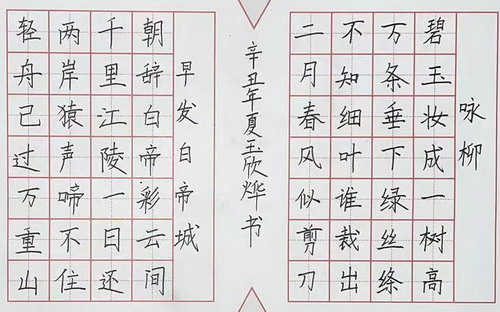 咏柳
碧玉妆成一树高
万条垂下绿丝绦
不知细叶谁裁出
二月春风似剪刀
辛丑年夏玉欣烨书
早发白帝城
朝辞白帝彩云间
千里江陵一日还
两岸猿声啼不住
轻舟已过万重山